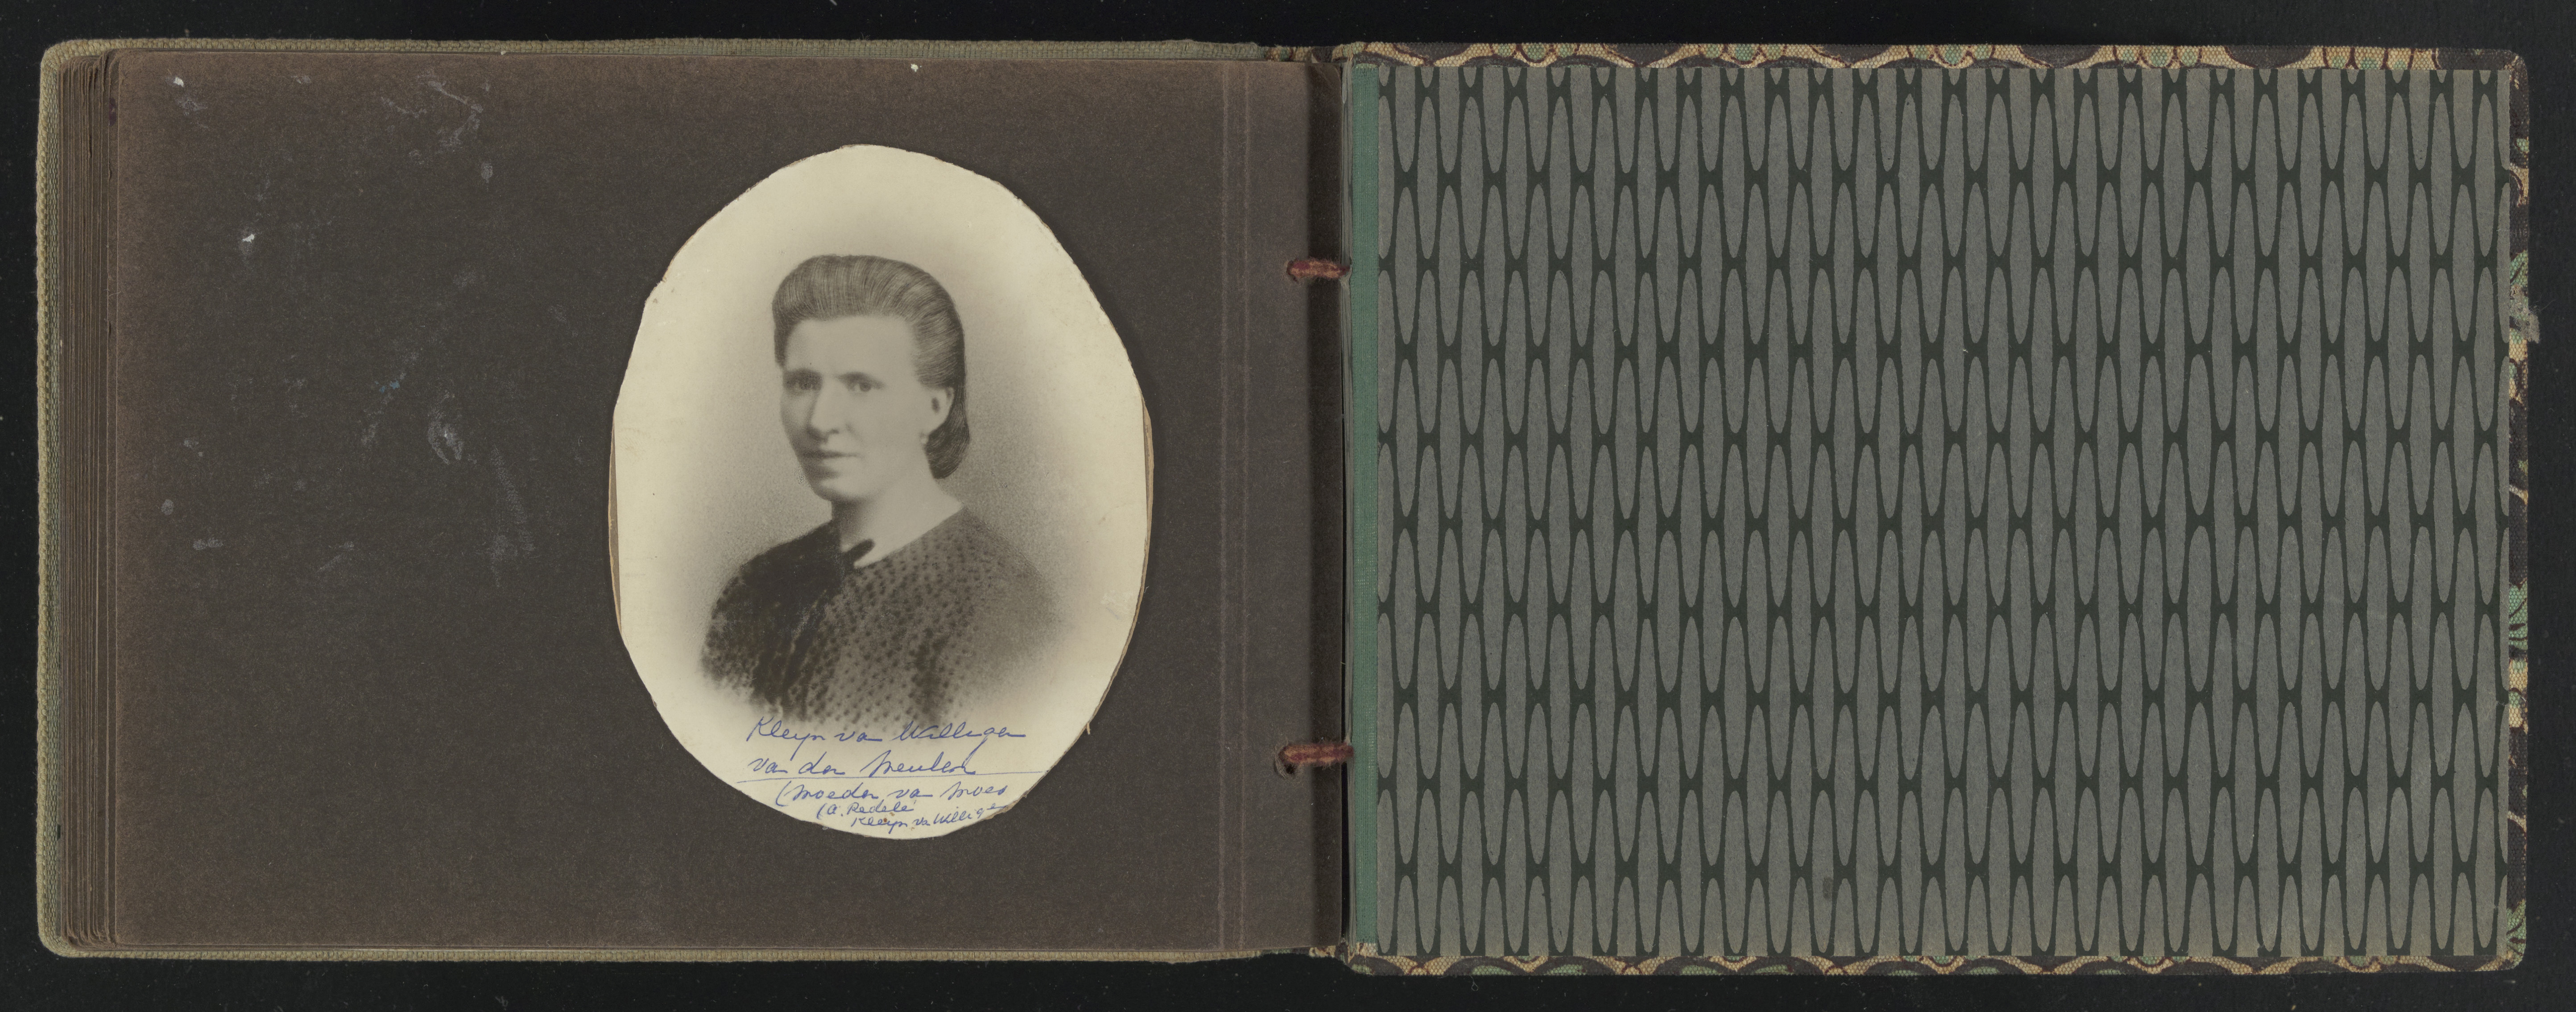 Kleyn van Willigen
van der Meulen
(moeder van moes
(A. Redelé
Kleyn van Willigen